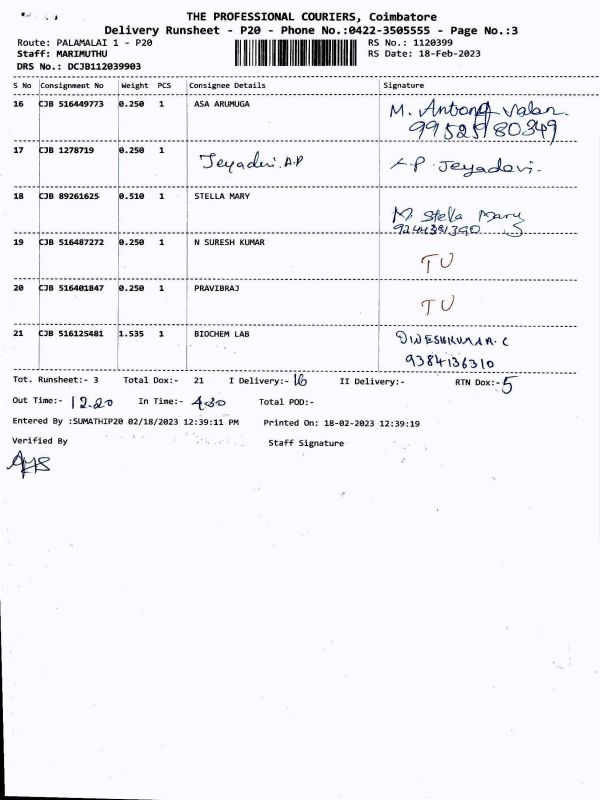 THE PROFESSIONAL COURIERS, Coimbatore
Delivery Runsheet - P20 - Phone No.:0422-3505555 - Page No.:3
Route: PALAMALAI 1 - P20 RS No.: 1120399
Staff: MARIMUTHU RS Date: 18-Feb-2023
DRS No.: DCJB112039903
S No Consignment No Weight PCS Consignee Details Signature
16 CJB 516449773 0.250 1 ASA ARUMUGA M. Antony Valan.
9952580349
17 CJB 1278719 0.250 1 Jeyadevi.A.P A.P Jeyadevi.
18 CJB 89261625 0.510 1 STELLA MARY M Stella Mary
19 CJB 516487272 0.250 1 N SURESH KUMAR TU
20 CJB 516401847 0.250 1 PRAVIBRAJ TU
21 CJB 516125481 1.535 1 BIOCHEM LAB DINESHKUMAR.C
9384136310
Tot. Runsheet:- 3 Total Dox:- 21 I Delivery:- 16 II Delivery:- RTN Dox:- 5
Out Time:- 12.20 In Time:- 4.30 Total POD:-
Entered By :SUMATHIP20 02/18/2023 12:39:11 PM Printed On: 18-02-2023 12:39:19
Verified By Staff Signature